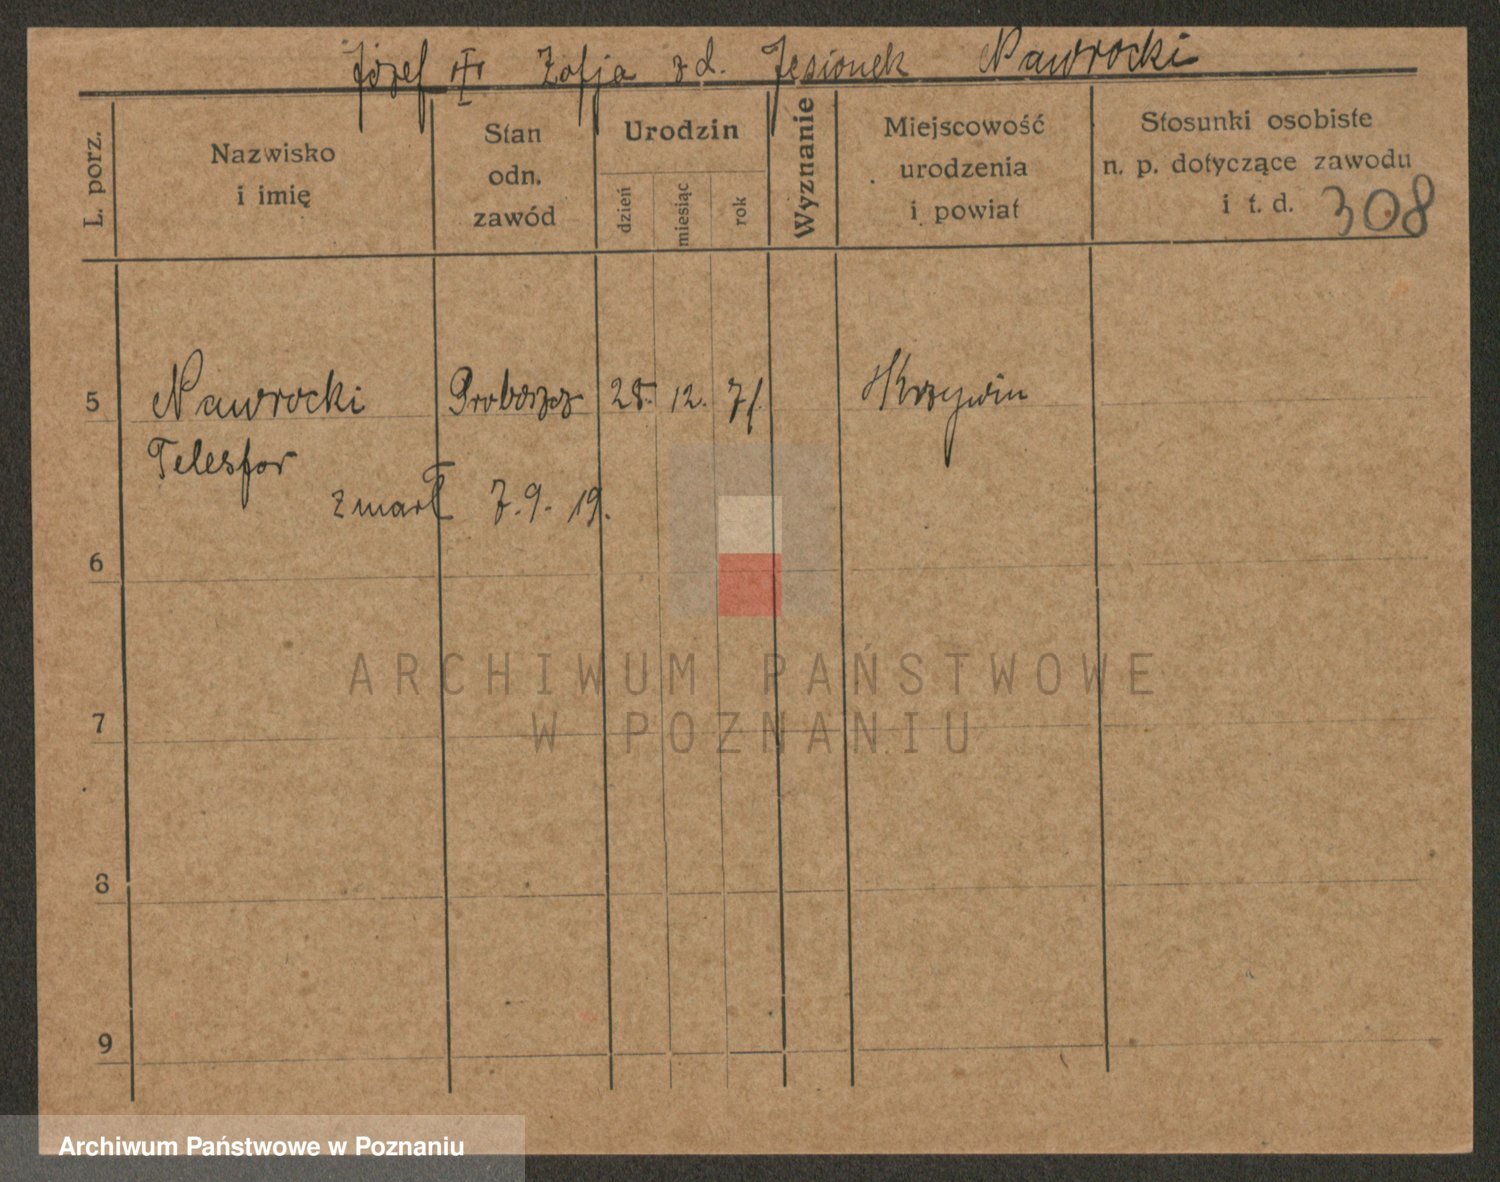 Józef Zofja zd. Jesionek Nawrocki
L. porz.
Nazwisko
i imię
Stan
odn.
zawód
Urodzin
dzień
miesiąc
rok
Wyznanie
Miejscowość
urodzenia
i powiat
Stosunki osobiste
n. p. dotyczące zawodu
i t. d. 308
5 Nawrocki Proboszcz 28. 12. 71. Krzywin
Telesfor
zmarł 7. 9. 19.
6
7
8
9
ARCHIWUM PAŃSTWOWE
W POZNANIU
Archiwum Państwowe w Poznaniu